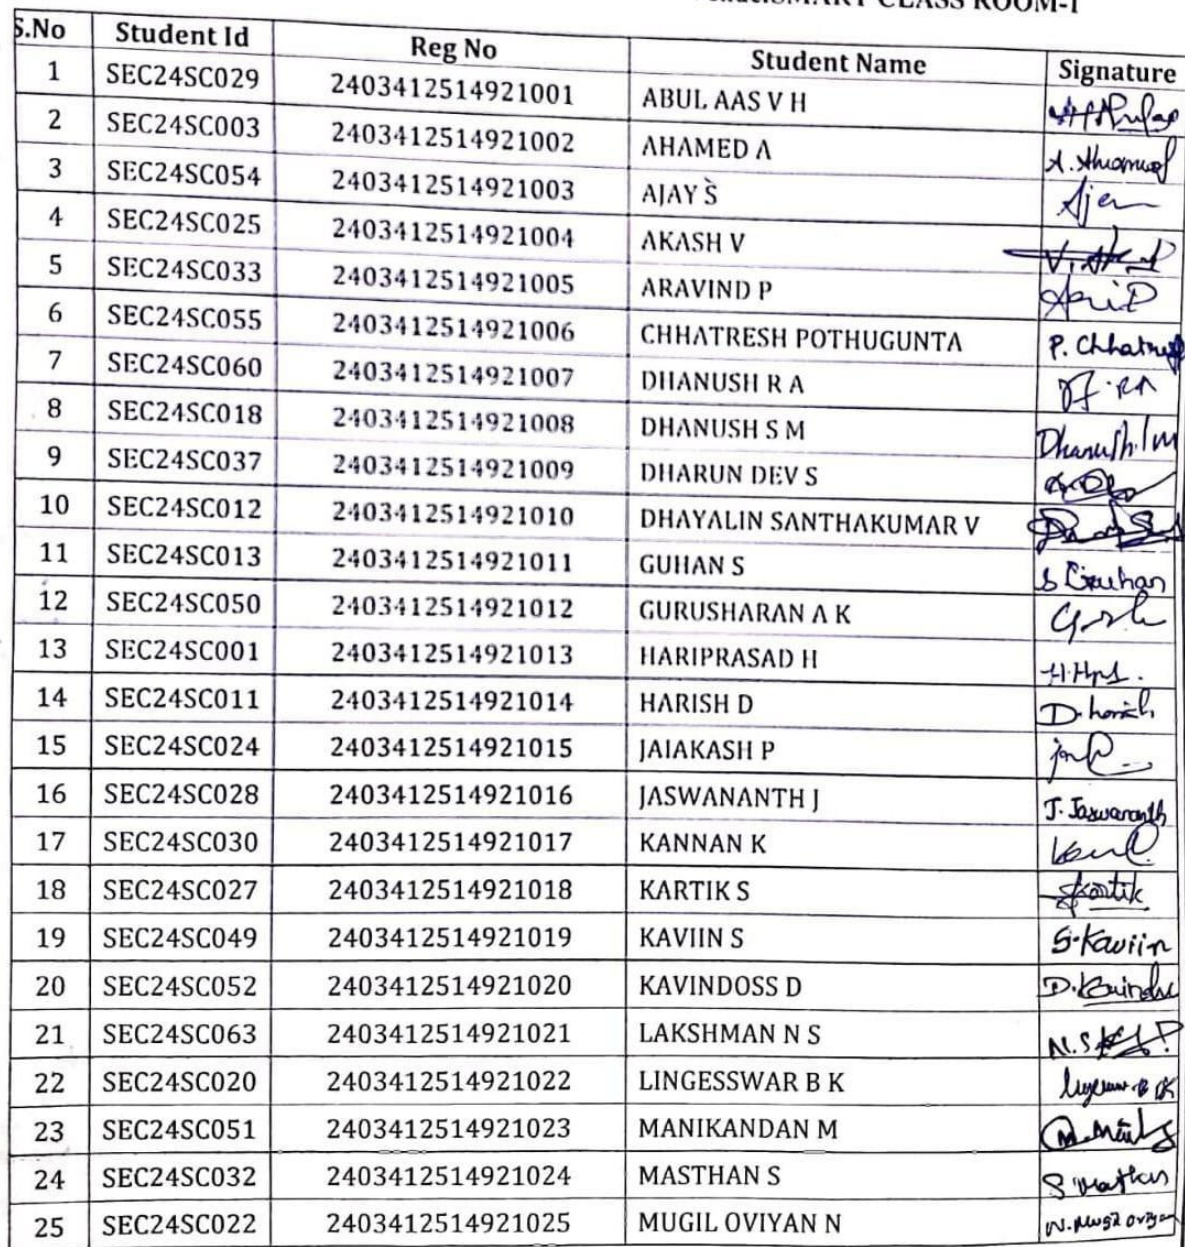 SMART CLASS ROOM-1
S.No Student Id Reg No Student Name Signature
1 SEC24SC029 2403412514921001 ABUL AAS V H
2 SEC24SC003 2403412514921002 AHAMED A
3 SEC24SC054 2403412514921003 AJAY S
4 SEC24SC025 2403412514921004 AKASH V
5 SEC24SC033 2403412514921005 ARAVIND P
6 SEC24SC055 2403412514921006 CHHATRESH POTHUGUNTA
7 SEC24SC060 2403412514921007 DHANUSH R A
8 SEC24SC018 2403412514921008 DHANUSH S M
9 SEC24SC037 2403412514921009 DHARUN DEV S
10 SEC24SC012 2403412514921010 DHAYALIN SANTHAKUMAR V
11 SEC24SC013 2403412514921011 GUHAN S
12 SEC24SC050 2403412514921012 GURUSHARAN A K
13 SEC24SC001 2403412514921013 HARIPRASAD H
14 SEC24SC011 2403412514921014 HARISH D
15 SEC24SC024 2403412514921015 JAIAKASH P
16 SEC24SC028 2403412514921016 JASWANANTH J J. Jaswananth
17 SEC24SC030 2403412514921017 KANNAN K
18 SEC24SC027 2403412514921018 KARTIK S Kartik
19 SEC24SC049 2403412514921019 KAVIIN S S-Kaviin
20 SEC24SC052 2403412514921020 KAVINDOSS D
21 SEC24SC063 2403412514921021 LAKSHMAN N S
22 SEC24SC020 2403412514921022 LINGESSWAR B K
23 SEC24SC051 2403412514921023 MANIKANDAN M
24 SEC24SC032 2403412514921024 MASTHAN S
25 SEC24SC022 2403412514921025 MUGIL OVIYAN N